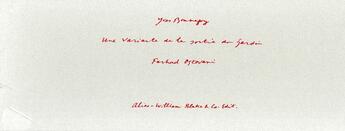 Yves Bonnefoy
Une variante de la sortie du jardin
Farhad Ostovani
William Blake & Co. Edit.